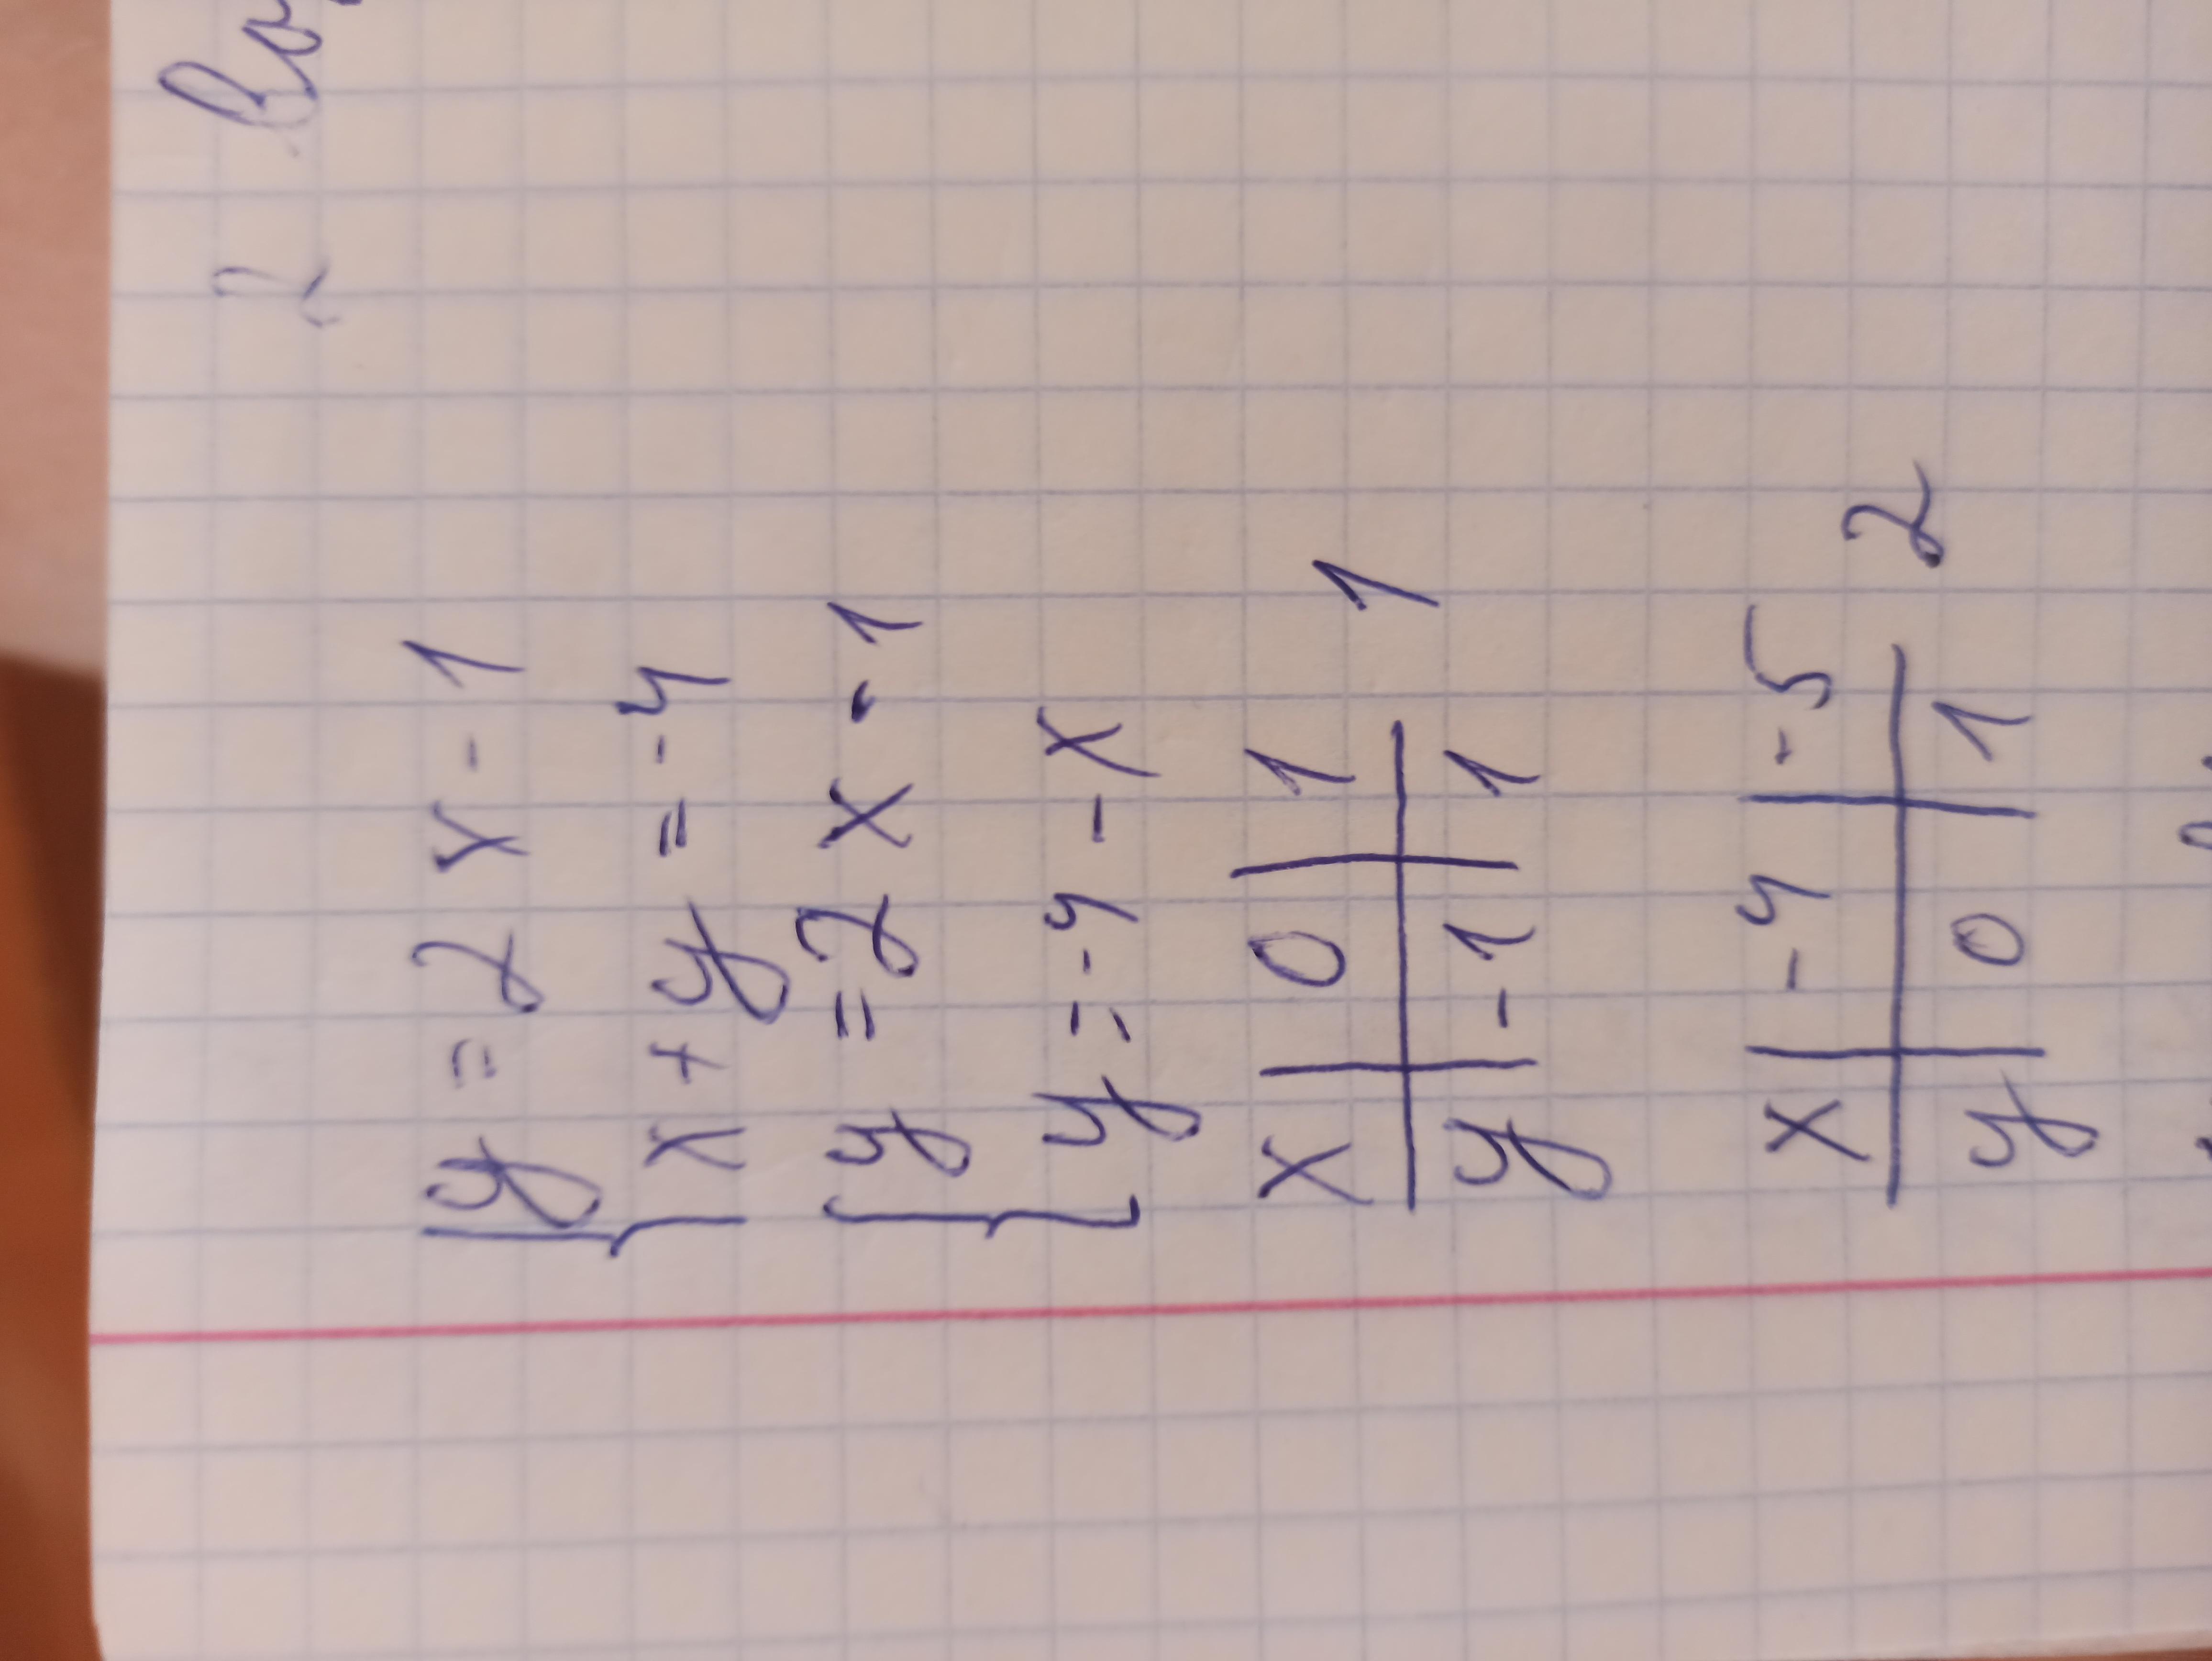 2
y = 2x - 1
x + y = -4
y = 2x - 1
y = -4 - x
x | 0 | 1
y | -1 | 1
1
x | -4 | -5
y | 0 | 1
2